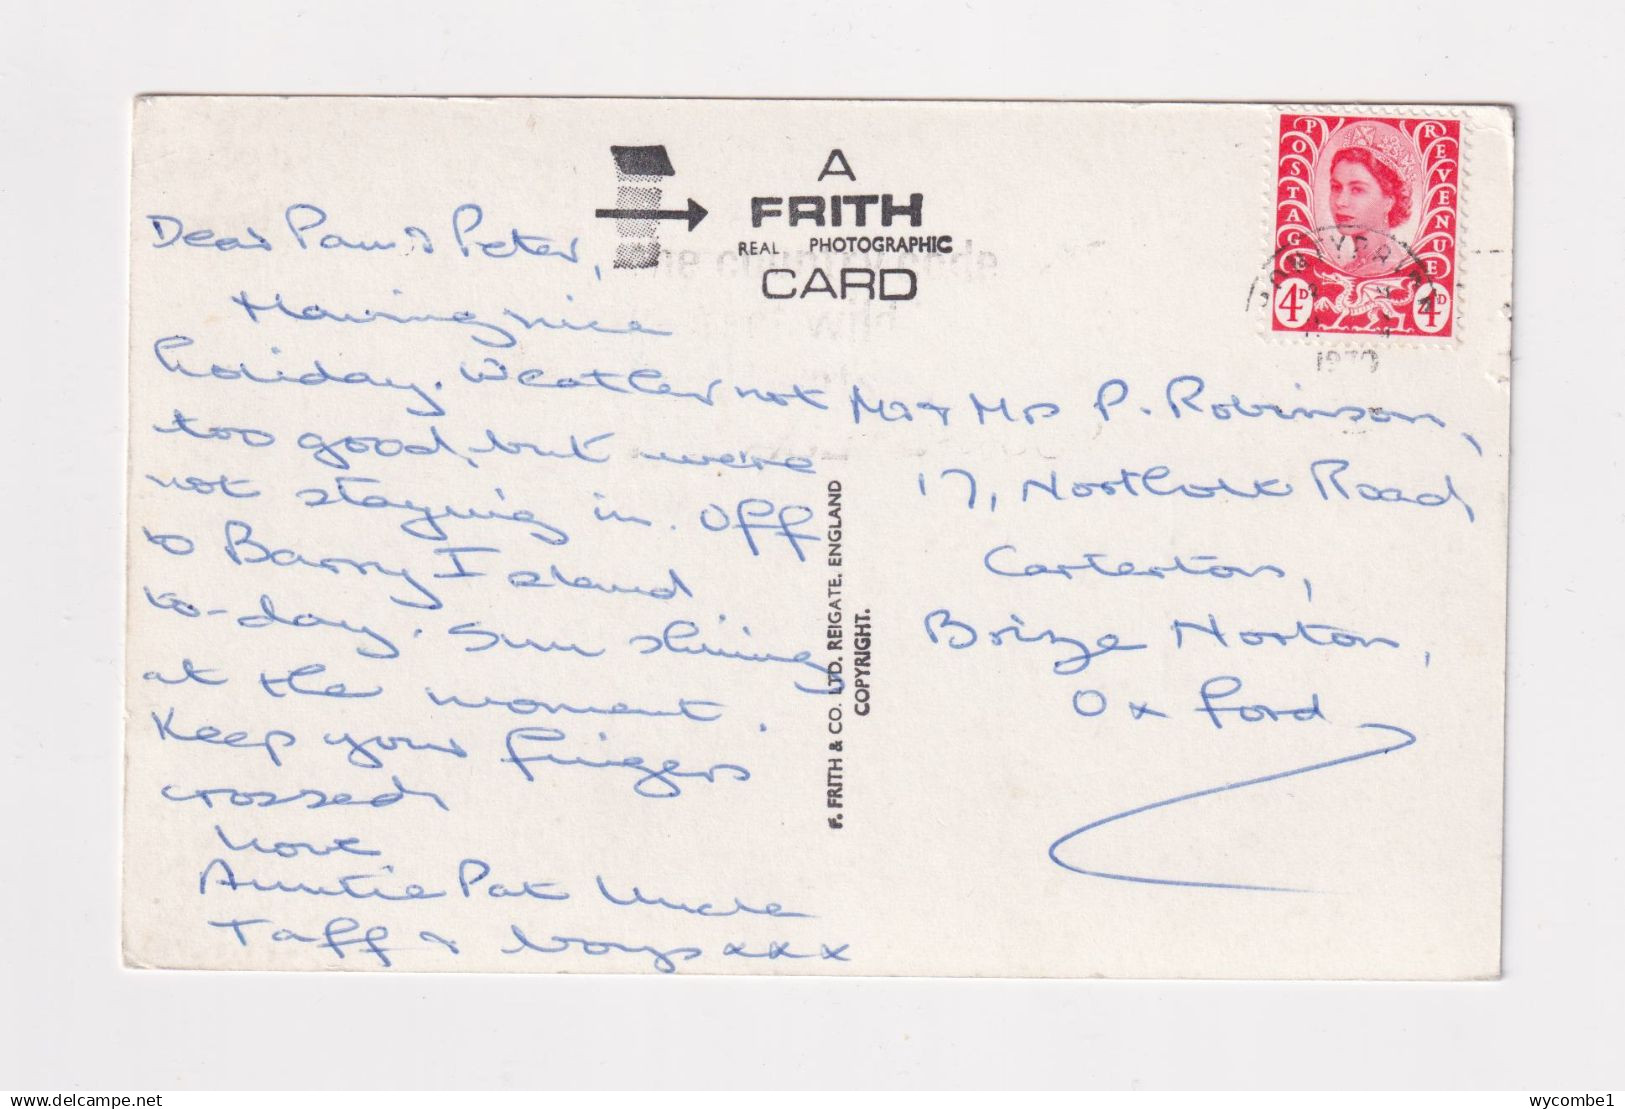 A
FRITH
REAL PHOTOGRAPHIC
CARD
POSTAGE
REVENUE
4D
4D
PONTYPRIDD
1970
Dear Pam & Peter,
Having nice
holiday. Weather not
too good, but we're
not staying in. Off
to Barry Island
to-day. Sun shining
at the moment.
Keep your fingers
crossed
Love
Auntie Pat Uncle
Taff & boys xxx
F. FRITH & CO. LTD. REIGATE. ENGLAND
COPYRIGHT.
Mr & Mrs P. Robinson,
17, Northolt Road
Carterton,
Brize Norton,
Oxford
wycombe1